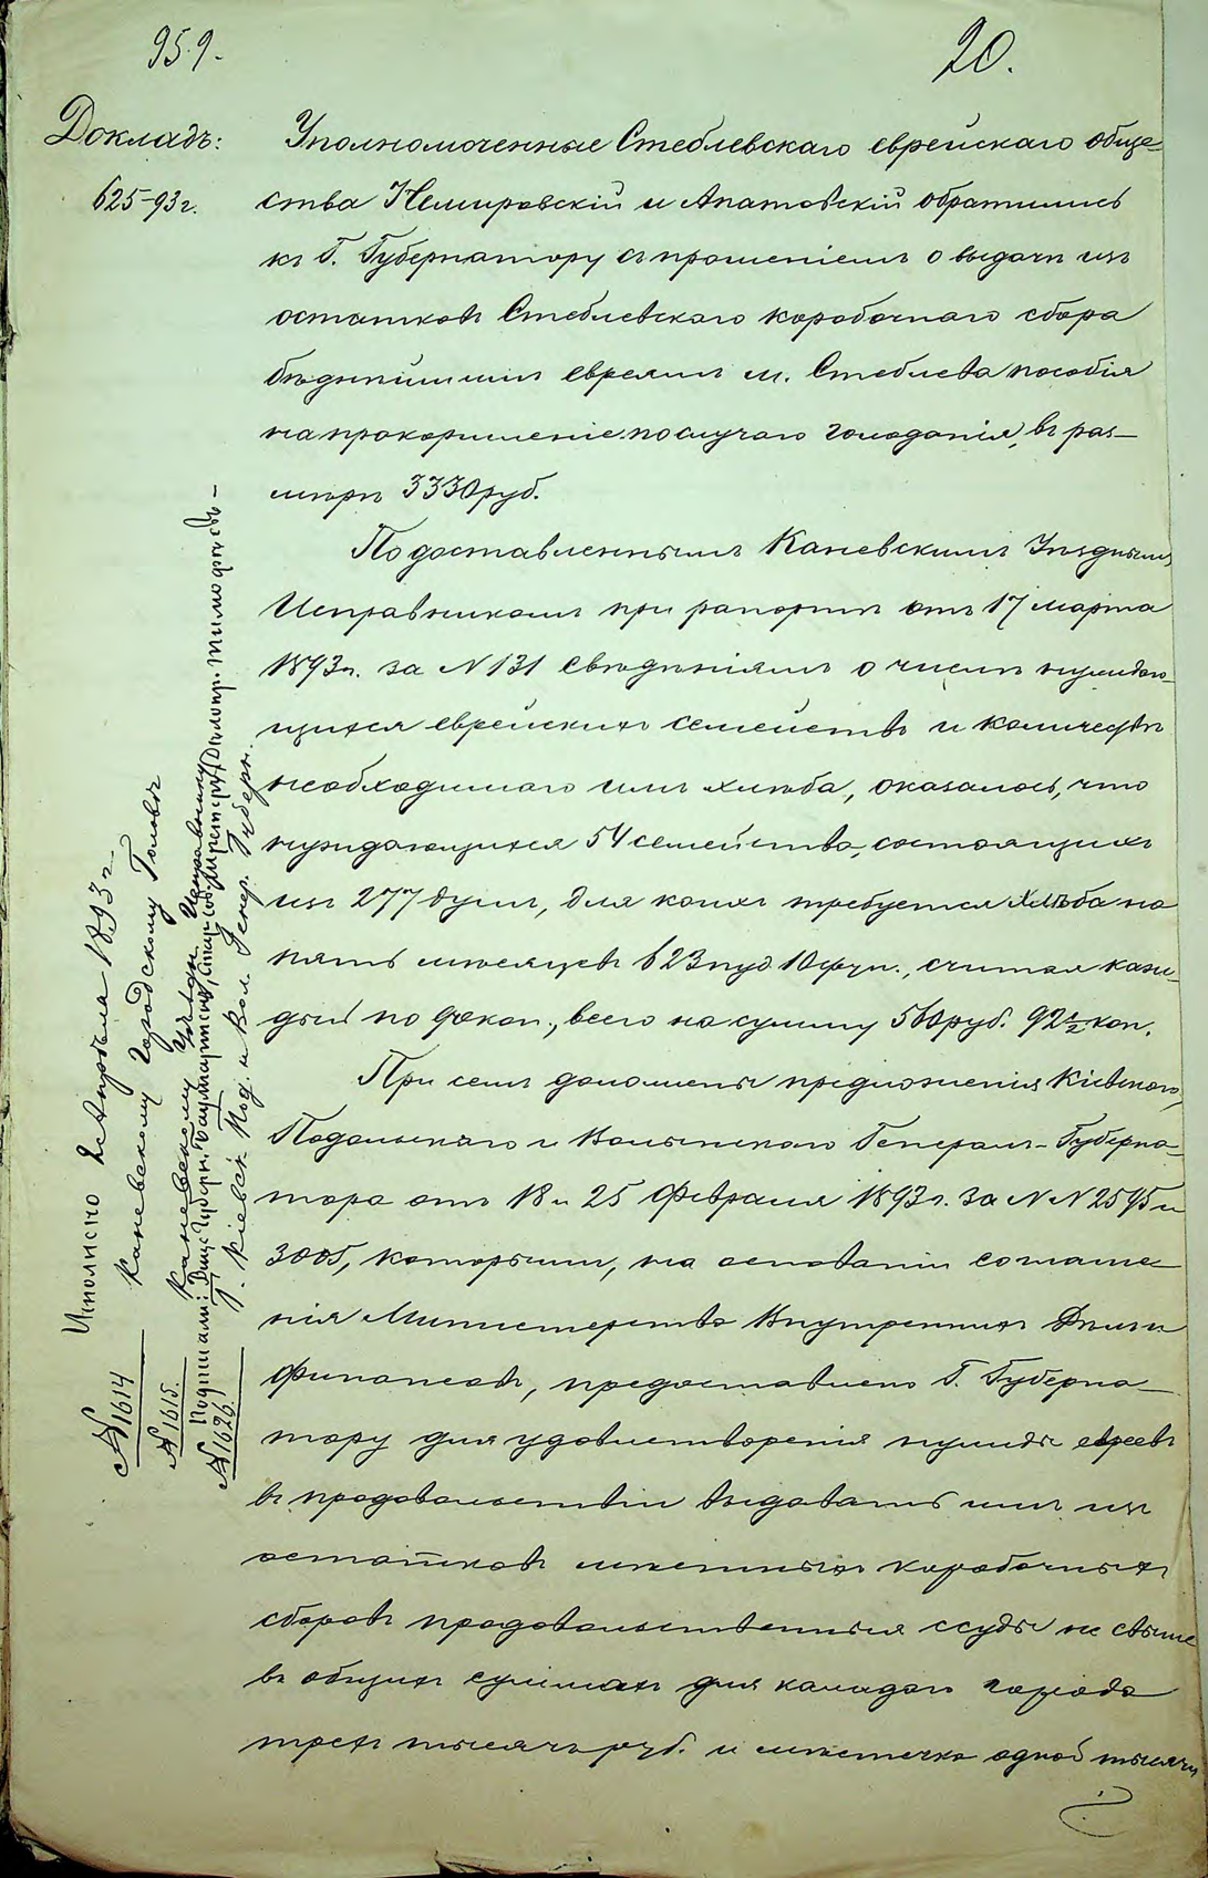 959.
20.
Докладъ:
625-93г.
Уполномоченные Стеблевскаго еврейскаго обще-
ства Немировскій и Апатовскій обратились
къ Г. Губернатору съ прошеніемъ о выдачѣ изъ
остатковъ Стеблевскаго коробочнаго сбора
бѣднѣйшимъ евреямъ м. Стеблева пособія
на прокормленіе по случаю голоданія, въ раз-
мѣрѣ 3330 руб.
По доставленнымъ Каневскимъ Уѣзднымъ
Исправникомъ при рапортѣ отъ 17 марта
1893 г. за N 131 свѣдѣніямъ о числѣ нуждаю-
щихся еврейскихъ семействъ и количествѣ
необходимаго имъ хлѣба, оказалось, что
нуждающихся 54 семейства, состоящихъ
изъ 277 душъ, для коихъ требуется хлѣба на
пять мѣсяцевъ 623 пуд. 10 фун., считая каж-
дый по 90 коп., всего на сумму 560 руб. 92½ коп.
При семъ доложены предложенія Кіевскаго,
Подольскаго и Волынскаго Генералъ-Губерна-
тора отъ 18 и 25 Февраля 1893 г. за N N 2595 и
3005, которыми, на основаніи соглаше-
нія Министерства Внутреннихъ Дѣлъ и
Финансовъ, предоставлено Г. Губерна-
тору для удовлетворенія нужды евреевъ
въ продовольствіи выдавать имъ изъ
остатковъ мѣстныхъ коробочныхъ
сборовъ продовольственныя ссуды не свыше
въ общихъ суммахъ для каждаго города
трехъ тысячъ руб. и мѣстечка одной тысячи
Исполнено 2 Апрѣля 1893 г.
Каневскому Городскому Головѣ
N 1614
Каневскому Уѣздн. Исправнику
N 1615.
Подписали: Вице Губерн. Баумгартенъ, Стар. Сов. Дѣлопр. Тимофѣевъ -
Г. Кіевск. Под. и Вол. Генер. Губерн.
N 1626.